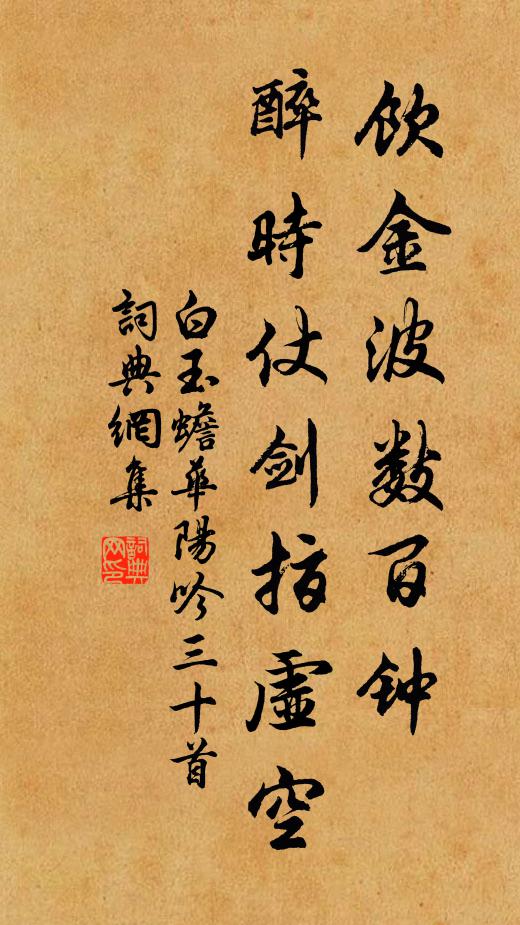 飲金波数百钟
醉時仗劍指虛空
白玉蟾華陽吟三十首
詞典網集
詞典網印